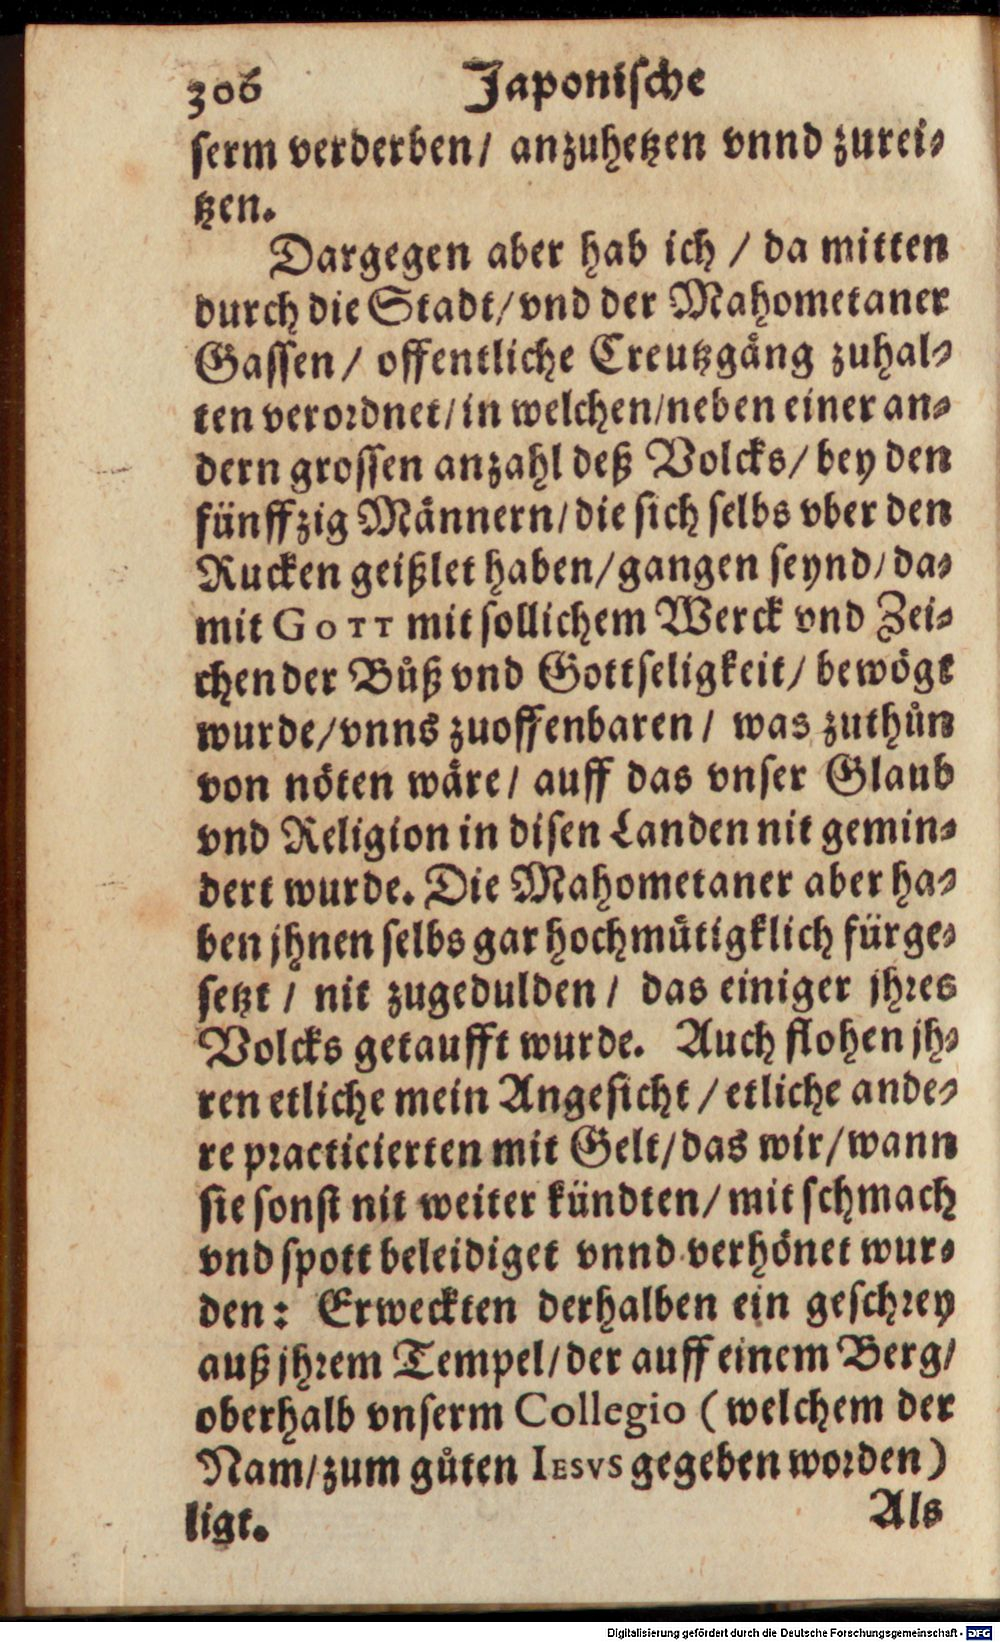 306 Japonische
serm verderben/ anzuhetzen vnnd zurei⸗
tzen.
Dargegen aber hab ich / da mitten
durch die Stadt/ vnd der Mahometaner
Gassen/ offentliche Creutzgång zuhal⸗
ten verordnet/ in welchen/ neben einer an⸗
dern grossen anzahl deß Volcks/ bey den
fünffzig Männern/ die sich selbs vber den
Rucken geißlet haben/ gangen seynd/ da⸗
mit GOTT mit sollichem Werck vnd Zei⸗
chen der Bůß vnd Gottseligkeit/ bewögt
wurde/ vnns zuoffenbaren/ was zuthůn
von nöten wäre/ auff das vnser Glaub
vnd Religion in disen Landen nit gemin⸗
dert wurde. Die Mahometaner aber ha⸗
ben jhnen selbs gar hochmůtigklich fürge⸗
setzt/ nit zugedulden/ das einiger jhres
Volcks getaufft wurde. Auch flohen jh⸗
ren etliche mein Angesicht/ etliche ande⸗
re practicierten mit Gelt/ das wir/ wann
sie sonst nit weiter kündten/ mit schmach
vnd spott beleidiget vnnd verhönet wur⸗
den: Erweckten derhalben ein geschrey
auß jhrem Tempel/ der auff einem Berg/
oberhalb vnserm Collegio (welchem der
Nam/ zum gůten IESVS gegeben worden)
ligt. Als
Digitalisierung gefördert durch die Deutsche Forschungsgemeinschaft - DFG